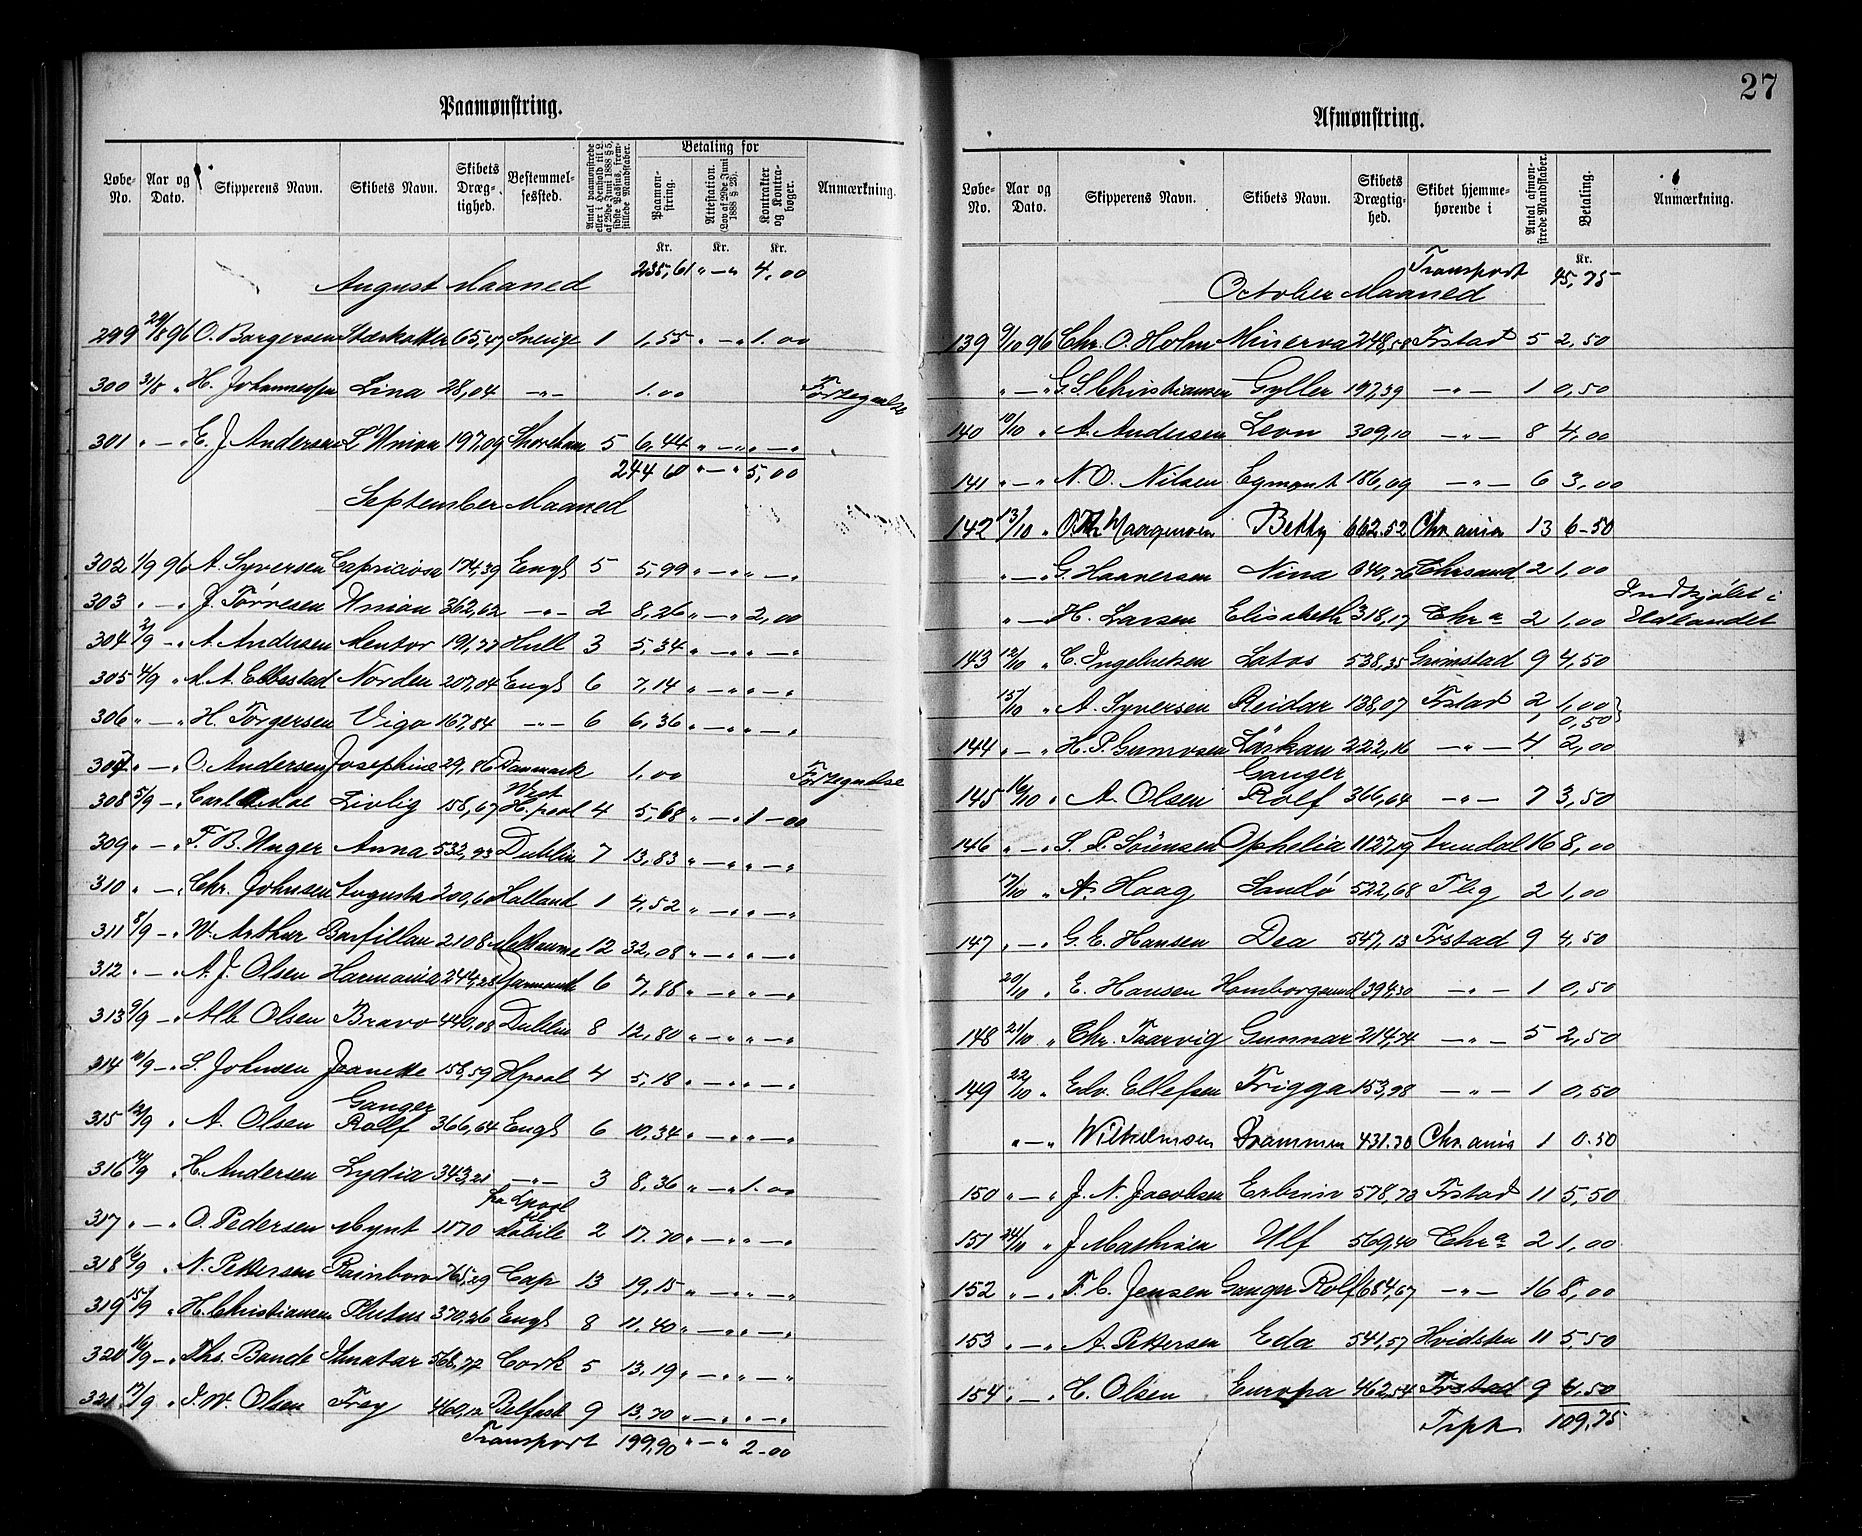 27
Paamønstring.
Løbe-No. Aar og Dato. Skipperens Navn. Skibets Navn. Skibets Dræg-tighed. Bestemmel-sessted. Antal paamønstrede eller i Henhold til L. af 29de Juni 1888 § 5, sidste Passus, frem-stillede Mandskaber. Betaling for Paamøn-string. Attestation. (Lov af 29de Juni 1888 § 23). Kontrakter og Kontra-bøger. Anmærkning.
Kr. Kr. Kr.
August Maaned 235,61 " — " 4,00
299 29/8 96 O. Borgersen Stærkodder 65,47 Sverige 1 1,55 " — " 1.00
300 31/8 " H. Johannessen Lina 28,04 — " — 1.00
301 " — " E. J. Andersen L'Union 197,09 Shoreham 5 6,44 " — " " — "
244 60 " — " 5,00
September Maaned
302 1/9 96 A. Syversen Capriciosa 174,39 Engl 5 5,99 " — " " — "
303 " — " J. Tørresen Union 362,62 — " — 2 8,26 " — " 2,00
304 2/9 — " A. Andersen Mentor 191,77 Hull 3 5,34 " — " " — "
305 4/9 " A. Ebbestad Norden 207,04 Engl 6 7,14 " — " " — "
306 " — " H. Torgersen Viga 167,84 — " — 6 6,36 " — " " — "
307 " — " O. Andersen Josephine 29,86 Danmark 1,00
308 5/9 — " Carl Livlig 158,67 West H.pool 4 5,68 " — " 1 — 00
309 " — " F. B. Unger Anna 532,93 Dublin 7 13,83 " — " " — "
310 " — " Chr. Johnsen Augusta 200,60 Holland 1 4,52 " — " " — "
311 8/9 — " W. Arthur Barfillan 2108 12 32,08 " — " " — "
312 " — " A. J. Olsen Harmonia 244,28 Yarmouth 6 7,88 " — " " — "
313 9/9 — " Alb Olsen Bravo 440,08 Dublin 8 12,80 " — " " — "
314 10/9 — " S. Johnsen Jeanette 158,59 Hpool 4 5,18 " — " " — "
315 12/9 " A. Olsen Ganger Rolf 366,64 Engl 6 10,34 " — " " — "
316 14/9 " H. Andersen Lydia 343,21 — " — 3 8,36 " — " 1.00
317 " — " O. Pedersen Mynt 1170 fra Lpool til Mobile 2 17.70 " — " " — "
318 16/9 " N. Pettersen Rainbow 765,29 Cap 13 19,15 " — " " — "
319 15/9 " H. Christiansen Plutus 370,26 Engl 8 11,40 " — " " — "
320 16/9 — " Ths. Bande Imatar 568,72 Cork 5 13,19 " — " " — "
321 17/9 " J. W. Olsen Frey 460,12 Belfast 9 13,70 " — " " — "
Transport 199,90 " — " 2-00
Afmønstring.
Løbe-No. Aar og Dato. Skipperens Navn. Skibets Navn. Skibets Drægtig-hed. Skibet hjemme-hørende i Antal afmøn-strede Mandskaber. Betaling. Anmærkning.
Kr.
October Maaned Transport 45,75
139 9/10 96 Chr. O. Holm Minerva 248,58 Frstad 5 2,50
" — " G. S. Christiansen Gyller 197,39 — " — 1 0,50
140 10/10 " A. Andersen Leon 309,10 — " — 8 4,00
141 " — " N. O. Nilsen Egmont 186,09 — " — 6 3,00
142 13/10 " O. Th Haagensen Betty 662.52 Chrania 13 6-50
" — " G. Haaversen Nina 640,76 Chrsand 2 1,00
" — " H. Larsen Elisabeth 318,17 Chra 2 1,00 Indkjøbt i Udlandet
143 12/10 " C. Ingebretsen Latos 538,35 Grimstad 9 4,50
15/10 " A. Syversen Reidar 138,07 Frstad 2 1,00
1 0,50
144 " — " H. P. Gunvosen Lärkan 222,16 — " — 4 2,00
145 16/10 " A. Olsen Ganger Rolf 366,64 — " — 7 3,50
146 " — " S. P. Sørensen Ophelia 1127,19 Arendal 16 8,00
17/10 " A. Haag Sandø 522,68 Tbg 2 1,00
147 " — " G. E. Hansen Dea 547,13 Frstad 9 4,50
20/10 " E. Hansen Homborgsund 394,30 — " — 1 0,50
148 21/10 " Chr. Taarvig Gunnar 214,74 — " — 5 2,50
149 22/10 " Edv. Ellefsen Frigga 153,98 — " — 1 0,50
" — " Wilhelmsen Drammen 431.70 Chrania 1 0.50
150 " — " J. N. Jacobsen Erbrin 578,72 Frstad 11 5,50
151 24/10 " J Mathisen Ulf 569,40 Chra 2 1,00
152 " — " F. C. Jensen Ganger Rolf 684,67 — " — 16 8,00
153 " — " A. Pettersen Eda 541,57 Hvidsten 11 5,50
154 " — " C. Olsen Europa 462,54 Frstad 9 4,50
Trpt 109,75